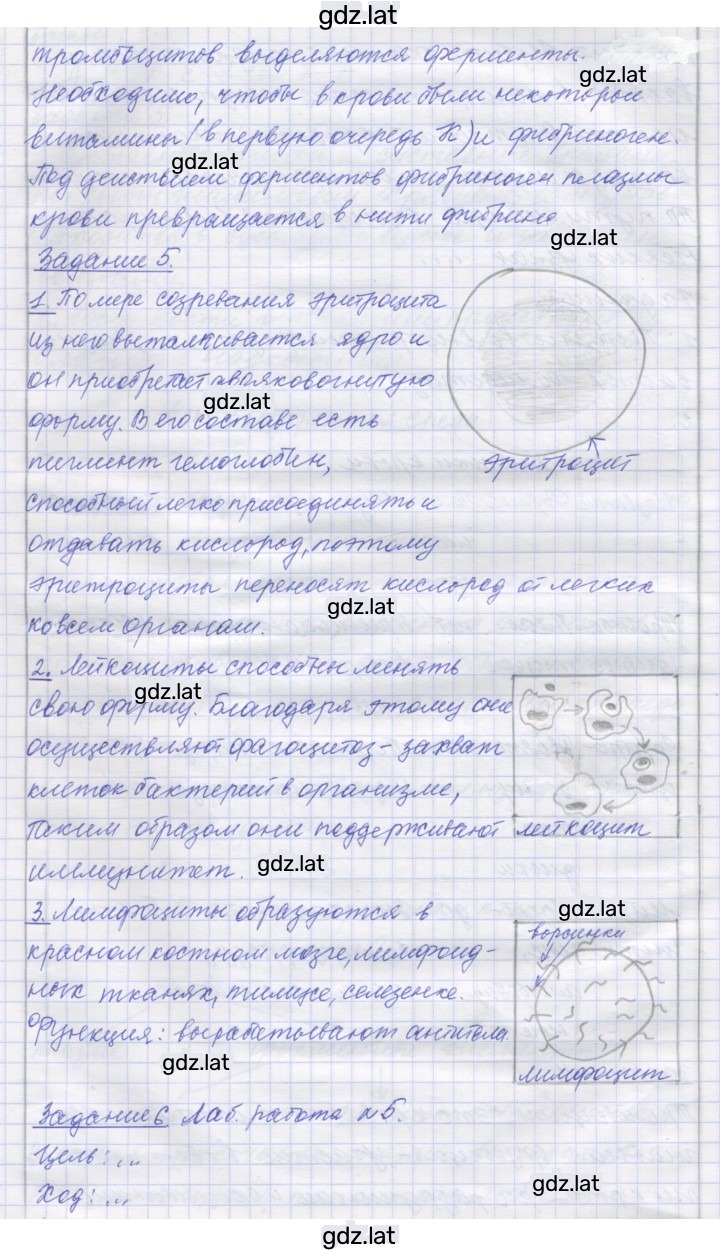 gdz.lat
тромбоцитов выделяются ферменты.
gdz.lat
Необходимо, чтобы в крови были некоторые
витамины (в первую очередь К) и фибриноген.
gdz.lat
Под действием ферментов фибриноген плазмы
крови превращается в нити фибрина
gdz.lat
Задание 5.
1. По мере созревания эритроцита
из него выталкивается ядро и
он приобретает двояковогнутую
gdz.lat
форму. В его составе есть
пигмент гемоглобин,
эритроцит
способный легко присоединять и
отдавать кислород, поэтому
эритроциты переносят кислород от легких
gdz.lat
ко всем органам.
2. Лейкоциты способны менять
gdz.lat
свою форму. Благодаря этому они
осуществляют фагоцитоз - захват
клеток бактерий в организме,
таким образом они поддерживают
лейкоцит
иммунитет.
gdz.lat
3. Лимфоциты образуются в
gdz.lat
ворсинки
красном костном мозге, лимфоид-
ных тканях, тимусе, селезенке.
Функция: вырабатывают антитела.
gdz.lat
лимфоцит
Задание 6. Лаб. работа №5.
Цель: ...
gdz.lat
Ход: ...
gdz.lat